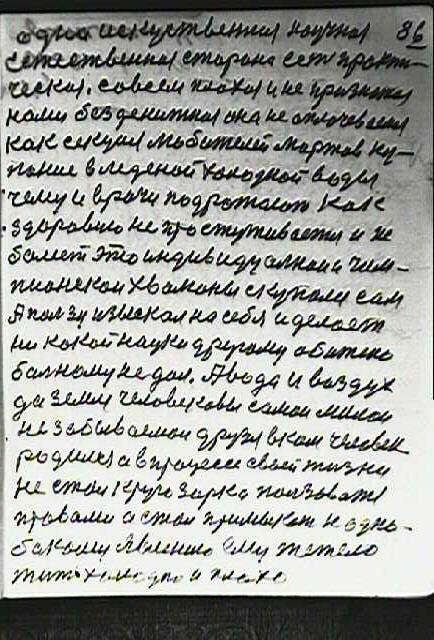 одна искуственная научная 86
естественная сторона есть практи-
ческая. совсем плохая и не признана
нами безденижная она не оплочеваемая
как секция Любителей Моржов ку-
пание в леденой холодной воды
чему и врачи подрожают как
здоровию не простуживается и не
болеет это индивидуалная и чем-
пионская хвалоны скупали сам
А ползу изыскал на себя и делаеть
ни какой науки другому обижено
болному не дал. А вода и воздух
да земля человекови самои милои
не забываемои друзя в ком человек
родился а в процесе своей жизни
не стал кругозорко ползоватя
правами а стал примыкат к одно-
бокому явлению Ему тежело
жить холодно и плохо